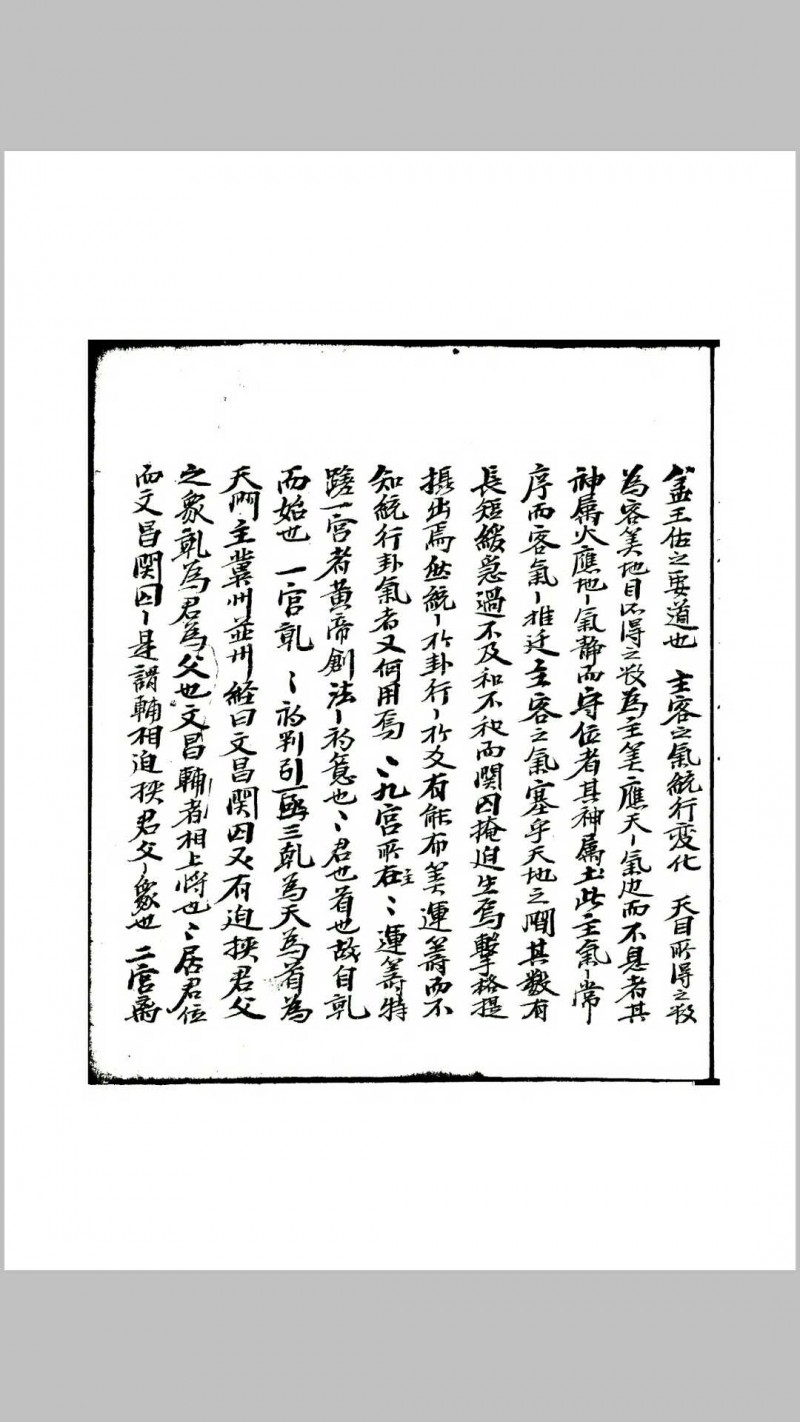 益王佐之要道也 主客之氣統行变化 天目所得之数
為客筭地目所得之数為主筭應天〻氣也而不息者其
神属火應地〻氣静而守位者其神属土此主氣〻常
序而客氣〻推迁主客之氣塞乎天地之間其数有
長短緩急過不及和不和而関囚掩迫生焉擊格提
摄出焉然統〻於卦行〻於爻有能布筭運籌而不
知統行卦氣者又何用焉〻九宮所在主〻運籌特
一宮者黄帝創法〻初意也〻君也首也故自乹
而始也 一宮乹〻初判引三乹為天為首為
天門主冀州並州経曰文昌関囚又有迫挾君父
之象乹為君為父也文昌輔者相上将也〻居君位
而文昌関囚〻是謂輔相迫挾君父〻象也 二宮离